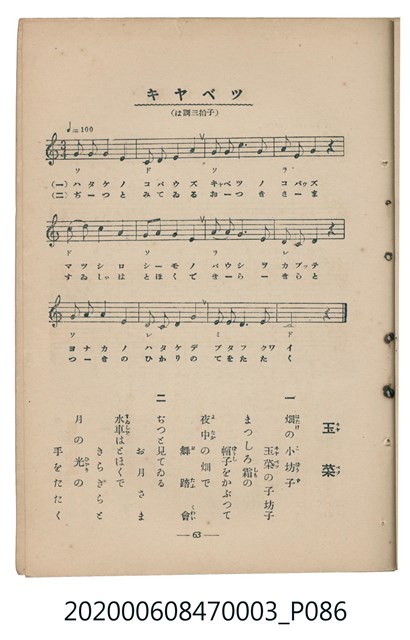 キヤベツ
(は調三拍子)
♩=100
ソ ド ソ ラ
(一) ハタケノ コバウズ キャベツノ コバウズ
(二) ぢーつと みてゐる おーつきさま
ド ソ ラ レ
マツシロ シーモノ バウシヲ カブッテ
すゐしゃは とほくで きーらーきらと
ソ レ ミ ド
ヨナカノ ハタケデ ブタフクワイ
つーきの ひかりの てをたたく
玉菜
一 畑の小坊子
玉菜の子坊子
まつしろ霜の
帽子をかぶつて
夜中の畑で
舞踏會
二 ぢつと見てゐる
お月さま
水車はとほくで
きらぎらと
月の光の
手をたたく
63
202000608470003_P086